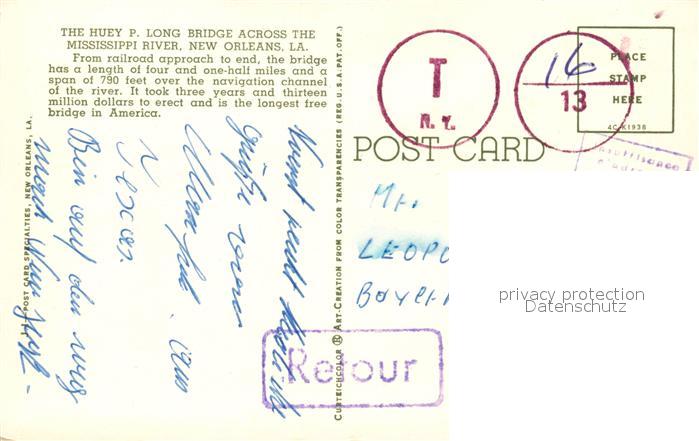 THE HUEY P. LONG BRIDGE ACROSS THE
MISSISSIPPI RIVER, NEW ORLEANS, LA.
From railroad approach to end, the bridge
has a length of four and one-half miles and a
span of 790 feet over the navigation channel
of the river. It took three years and thirteen
million dollars to erect and is the longest free
bridge in America.
J-11—POST CARD SPECIALTIES, NEW ORLEANS, LA.
CURTEICHCOLOR ® ART-CREATION FROM COLOR TRANSPARENCIES (REG. U.S.A. PAT. OFF.)
T
N.Y.
16
13
PLACE
STAMP
HERE
4C-K1938
POST CARD
Mr.
LEOPO
Retour
privacy protection
Datenschutz
recht
Grüße
aus
Texas.
Bin auf den weg
nach New York -